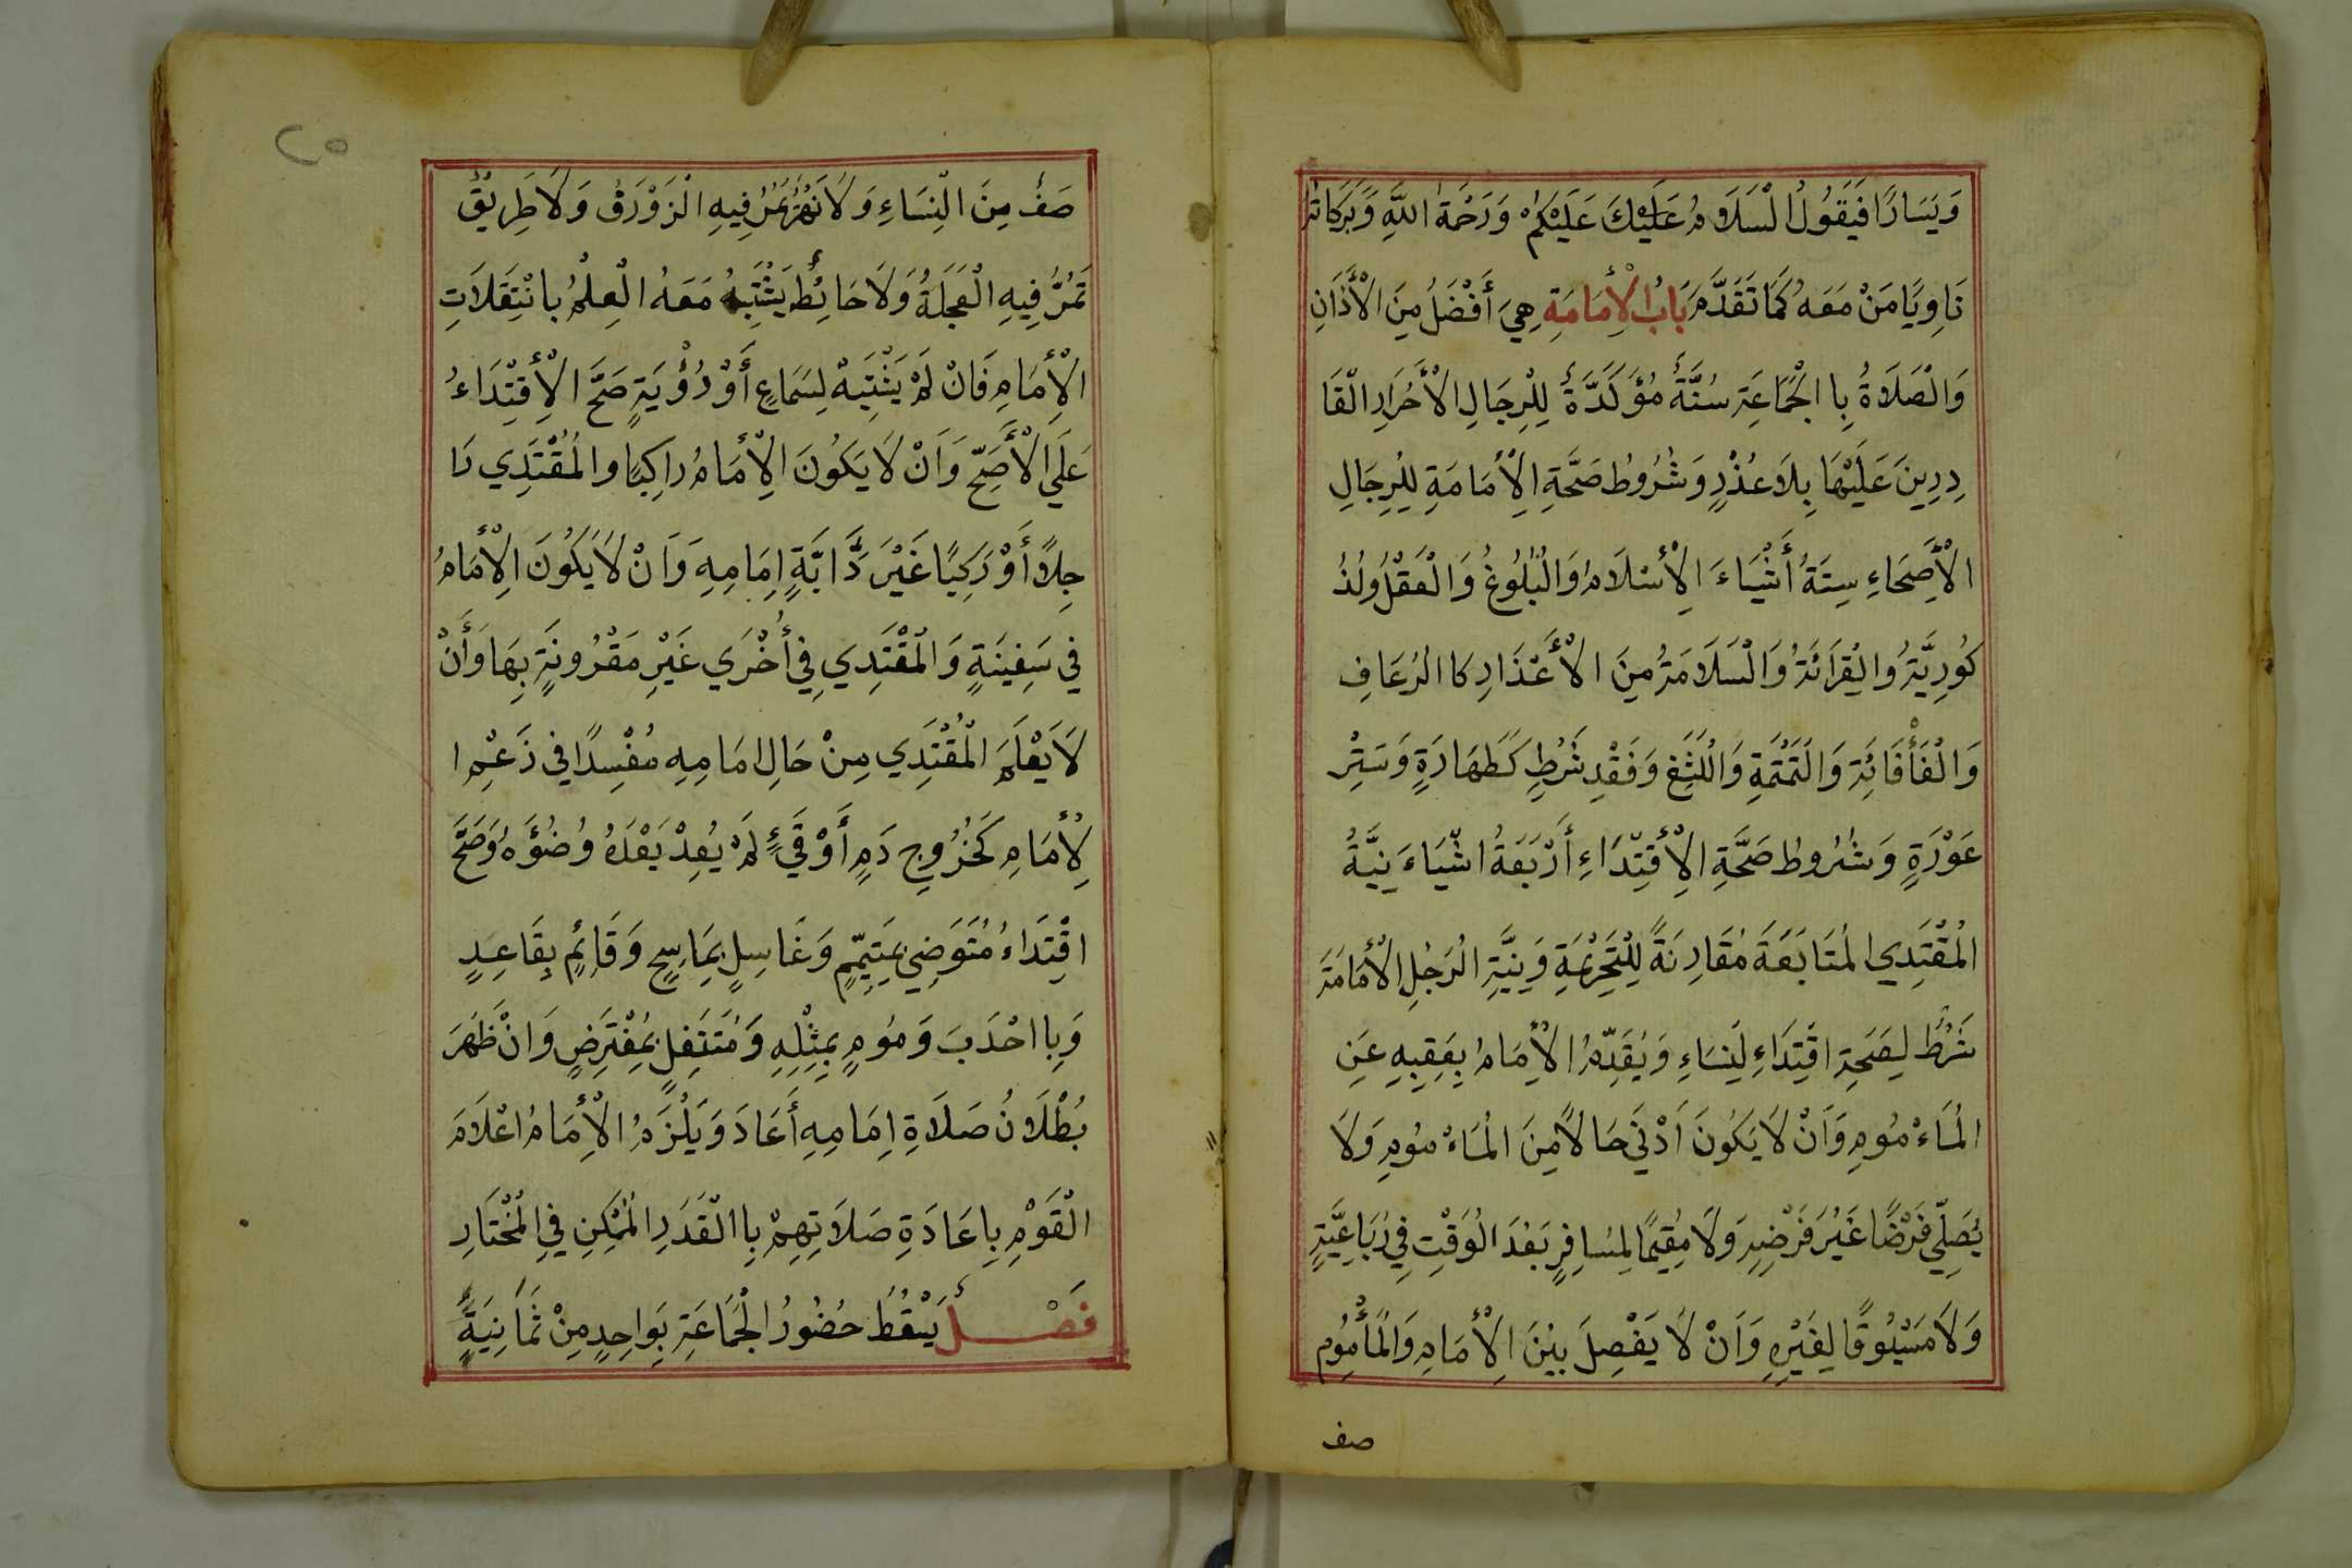 وَيَسَارًا فَيَقُولُ الْسَلَامُ عَلَيْكَ عَلَيْكُمْ وَرَحْمَةُ اللَّهِ وَبَرَكَاتُهُ
نَاوِيًا مَنْ مَعَهُ كَمَا تَقَدَّمَ بَابُ الْأِمَامَةِ هِيَ أَفْضَلُ مِنَ الْأَذَانِ
وَالْصَلَاةُ بِا الْجَمَاعَةِ سُنَّةٌ مُؤَكَدَّةٌ لِلْرِجَالِ الْأَحْرَارِ الْقَا
دِرِينَ عَلَيْهَا بِلَا عُذْرٍ وَشُرُوطُ صَحَّةِ الْأِمَامَةِ لِلْرِجَالِ
الْأَصِحَاءِ سِتَةُ أَشْيَاءَ الْأِسْلَامُ وَالْبُلُوغُ وَالْعَقْلُ وَلذُ
كُورِيَّةُ وَالْقِرَائَةُ وَالْسَلَامَةُ مِنَ الْأَعْذَارِ كَا الرُعَافِ
وَالْفَأْفَائَةِ وَالْتَمْتَمَةِ وَالْلَثَغِ وَفَقْدِ شَرْطٍ كَطَهَارَةٍ وَسَتْرِ
عَوْرَةٍ وَشُرُوطُ صَحَّةِ الْأِقْتِدَاءِ أَرْبَعَةُ اشْيَاءَ نِيَّةُ
الْمُقْتَدِي الْمُتَابَعَةَ مُقَارِنَةً لِلْتَحْرِيْمَةِ وَنِيَّةِ الْرَجُلِ الْأِمَامَةَ
شَرْطٌ لِصَحَةِ اقْتِدَاءِ لَنِسَاءِ وَيُقَدِّمُ الْأِمَامُ بِعَقِبِهِ عَنِ
الْمَاءْ مُومِ وَأَنْ لَا يَكُونَ اَدْنَي حَالًا مِنَ الْمَاءْ مُومِ وَلَا
يُصَلِّي فَرْضًا غَيْرَ فَرْضِهِ وَلَا مُقِيمًا لِمُسافِرٍ بَعْدَ الْوَقْتِ فِي رُبَاعِيَّةٍ
وَلَا مَسْبُوقًا لِغَيْرِهِ وَاَنْ لَا يَفْصِلَ بَيْنَ الْأِمَامِ وَالْمَأْمُومِ
صف
٢٥
صَفٌ مِنَ الْنِسَاءِ وَلَا نَهْرٌ يَمُرُ فِيهِ الْزَوْرَقُ وَلَا طَرِيْقٌ
تَمُرُّ فِيهِ الْعَجَلَةُ وَلَا حَائِطٌ يَشْتَبِهُ مَعَهُ الْعِلْمُ بانْتِقَلَاتِ
الْأِمَامِ فَانْ لَمْ يَشْتَبِهْ لِسَمَاعٍ أَوْ رُؤْيَةٍ صَحَّ الْأِقْتِدَاءُ
عَلَي الْأَصَحِّ وَاَنْ لَا يَكُونَ الْأِمَامُ رَاكِبًا وَالْمُقْتَدِي رَا
جِلًا أَوْ رَكِبًا غَيْرَ دَّابَّةِ إِمَامِهِ وَاَنْ لَا يَكُونَ الْأِمَامُ
فِي سَفِينَةٍ وَالْمُقْتَدِي فِي أُخْرَي غَيْرِ مَقْرُونَةٍ بِهَا وَأَنْ
لَا يَعْلَمَ الْمُقْتَدِي مِنْ حَالِ امَامِهِ مُفْسِدًا فِي زَعْمِ ا
لْأِمَامِ كَخُرُوجِ دَمٍ أَوْ قَيْءٍ لَمْ يُعِدْ بَعْدَهُ وُضُؤَهُ وَصَحَّ
اقْتِدَاءُ مُتَوَضِيٍ بِمَتِيَمِّمٍ وَغَاسِلٍ بِمَاسِحٍ وَقَائِمٍ بِقَاعِدٍ
وَبِا احْدَبَ وَمُومٍ بِمِثْلِهِ وَمُتَنَفِلٍ بِمُفْتَرِضٍ وَانْ ظَهَرَ
بُطْلَانُ صَلَاةِ إِمَامِهِ أَعَادَ وَيَلْزَمُ الْأِمَامُ اعْلَامَ
الْقَوْمِ بِاعَادَةِ صَلَاتِهِمْ بِا الْقَدَرِ الْمُمْكِنِ فِي الْمُخْتَارِ
فَصْلٌ يَسْقُطُ حُضُورُ الْجَمَاعَةِ بِوَاحِدٍ مِنْ ثَمَانِيَةٍ